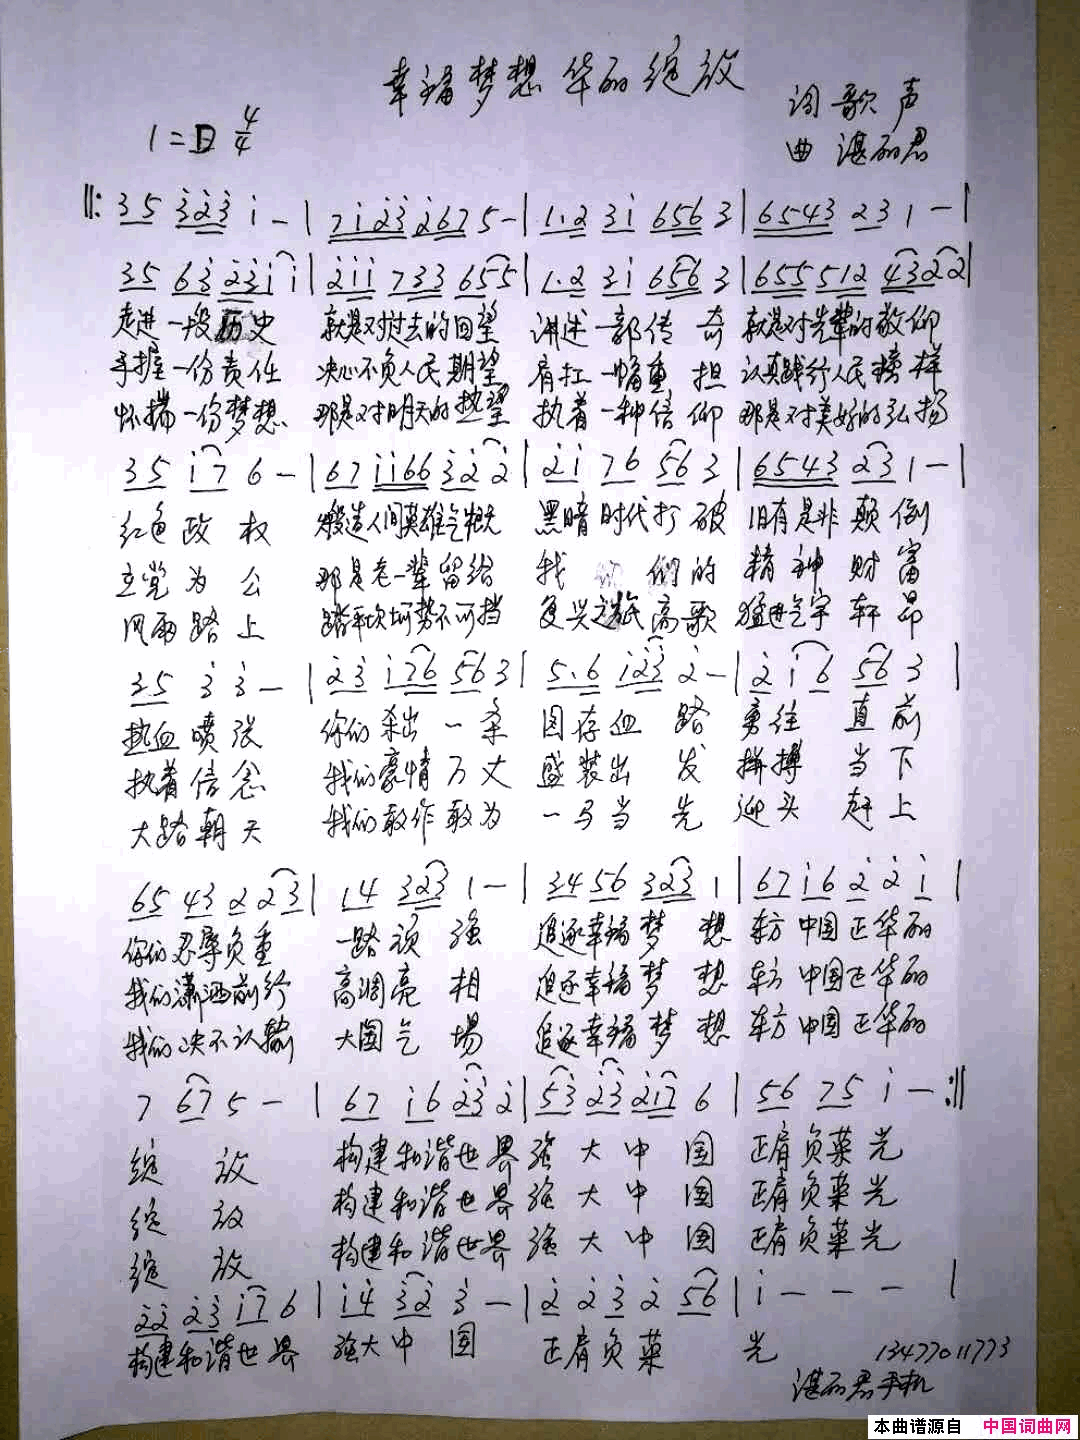 幸福梦想华丽绽放
词 歌声
1=D 4/4
曲 湛丽君
‖: 35 323 i - | 7i23 267 5 - | 1.2 3i 656 3 | 6543 23 1 - |
35 63 23i i | 2ii 733 655 | 1.2 3i 656 3 | 655 512 43 22 |
走进一段历史 就是对过去的回望 讲述一部传奇 就是对先辈的敬仰
手握一份责任 决心不负人民期望 肩扛一幅重担 认真践行人民榜样
怀揣一份梦想 那是对明天的热望 执着一种信仰 那是对美好的弘扬
35 i7 6 - | 67 ii66 3 2 2 | 2i 76 56 3 | 6543 23 1 - |
红色政权 人间英雄气概 黑暗时代打破 旧有是非颠倒
立党为公 那是老一辈留给 我们的 精神财富
风雨路上 踏平坎坷势不可挡 复兴之旅高歌 猛进气宇轩昂
35 3 3 - | 23 i76 56 3 | 5.6 i23 2 - | 2 i 6 56 3 |
热血喷张 你们杀出一条 图存血路 勇往直前
执着信念 我的豪情万丈 盛装出发 拼搏当下
大路朝天 我们敢作敢为 一马当先 迎头赶上
65 43 2 23 | 14 323 1 - | 34 56 323 1 | 67 i6 2 2 i |
你们忍辱负重 一路顽强 追逐幸福梦想 东方中国正华丽
我们潇洒前行 高调亮相 追逐幸福梦想 东方中国正华丽
我们决不认输 大国气場 追逐幸福梦想 东方中国正华丽
7 67 5 - | 67 i6 23 2 | 53 23 2i7 6 | 56 75 i - :‖
绽放 构建和谐世界 强大中国 正肩负荣光
绽放 构建和谐世界 强大中国 正肩负荣光
绽放 构建和谐世界 强大中国 正肩负荣光
22 23 i7 6 | i4 32 3 - | 2 2 3 2 56 | i - - - |
构建和谐世界 强大中国 正肩负荣 光
13477011773
湛丽君手机
本曲谱源自 中国词曲网